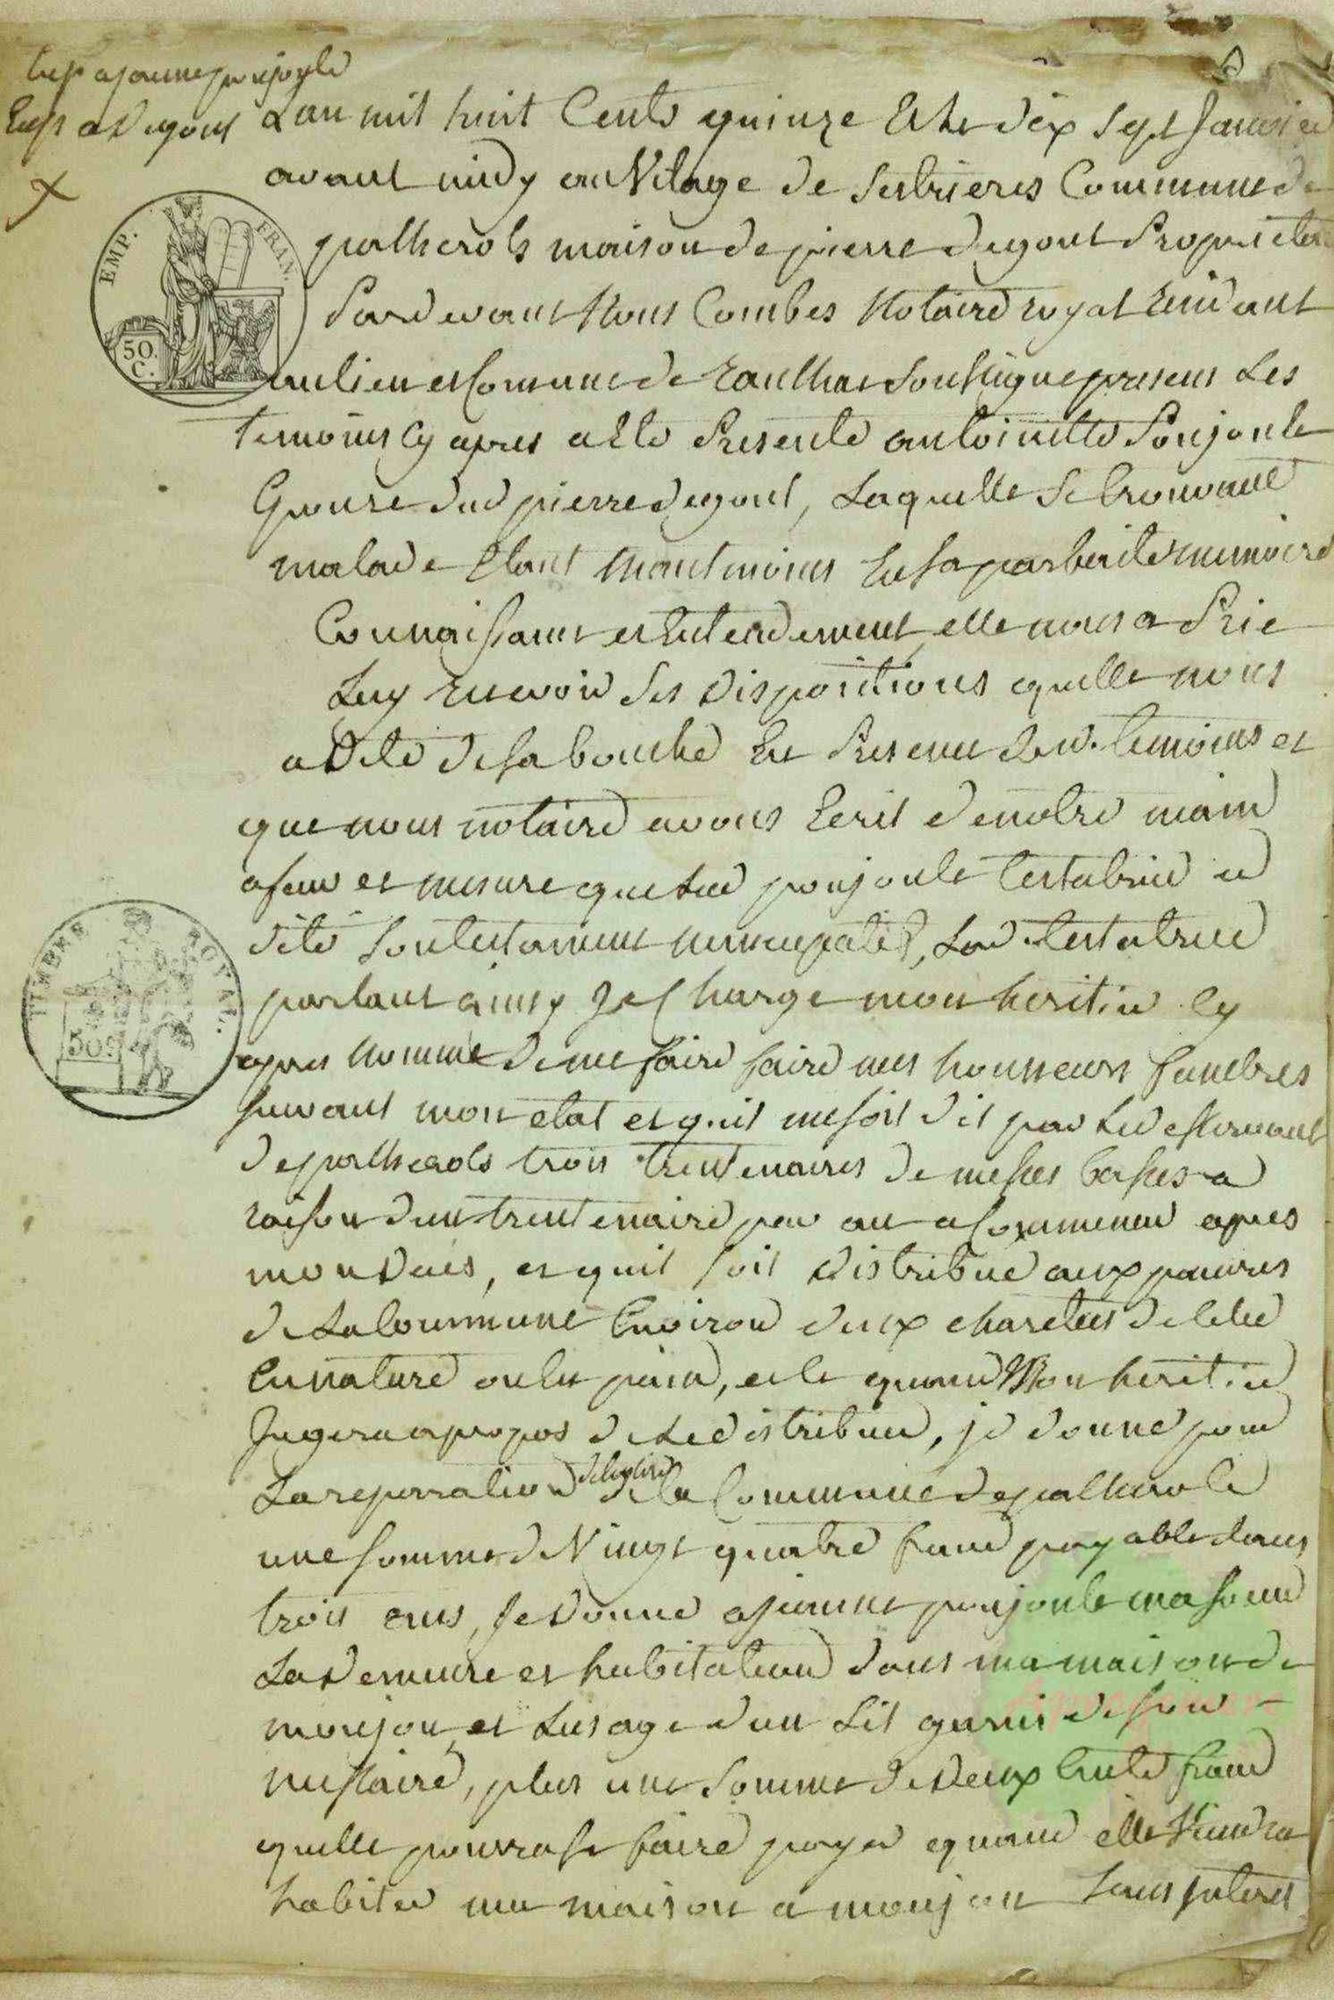 Exp a jeanne poujoule
Exp a Degoul
Lan mil huit Cents quinze Et le dix Sept Janvier
avant midy au Vilage de Serbrieres Commune de
palherols maison de pierre degoul Proprietere
Pardevant Nous Combes Notaire royal Residant
au lieu et Commune de Raulhac Soussigne presens Les
temoins Cy apres a Ete Presente antoinette Poujoule
Epouse dud pierre degoul, Laquelle Se trouvant
malade Etant Neantmoins En Sa parfaite memoire
Connaissance et Entendement, elle nous a Prie
Luy recevoir Ses dispositions quelle nous
a Dité de Sa bouche En Presence desd. temoins et
que nous notaire avons Ecrit de notre main
a feur et mesure que Lad poujoule testatrice a
dité Son testament nuncupatif, Lad. testatrice
parlant ainsy Je Charge mon heritier Cy
apres Nommé de me faire faire mes honneurs funebres
Suivant mon etat et quil me Soit dit par Le desservant
de palherols trois trentenaires de messes basses a
raison dun trentenaire par an a Commencer apres
mon Deces, et quil Soit Distribué aux pauvres
de La Commune Environ deux charetees de bled
En nature ou En pain, et le quand Mon heritier
Jugera apropos de Le distribuer, je donne pour
La reparation de leglise de la Commune de palherols
une Somme de Vingt quatre franc payable dans
trois ans, Je Donne a jeanne poujoule ma Soeur
La Demeure et habitation dans ma maison de
monjou et Lusage dun Lit garnis de Son
nessaire, plus une Somme de Deux Cents franc
quelle pourra Se faire payer quand elle Viendra
habiter ma maison a monjou Sans Interet
EMP. FRAN.
50 C.
TIMBRE ROYAL.
50 C